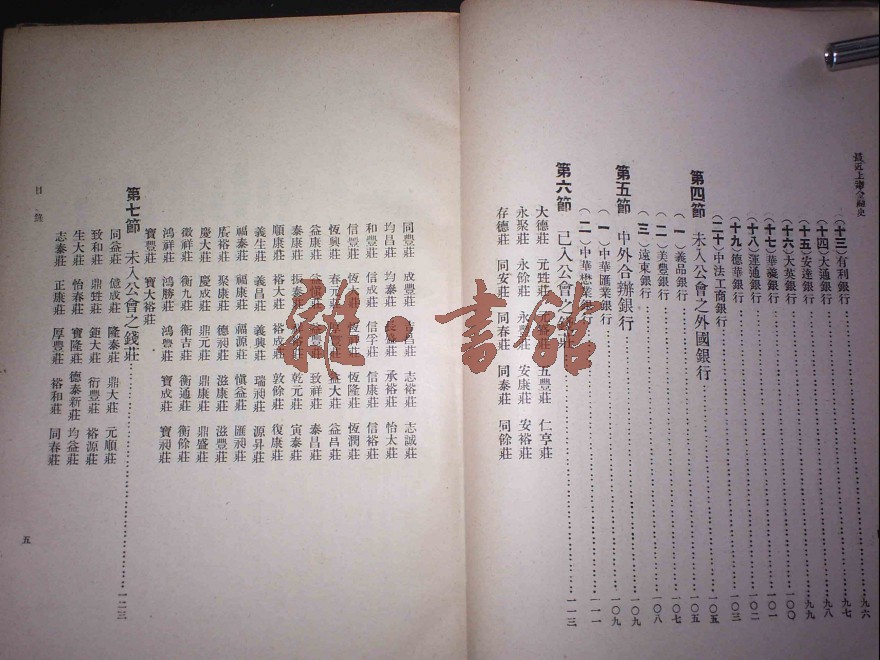 最近上海金融史
(十三)有利銀行……九六
(十四)大通銀行……九七
(十五)安達銀行……九八
(十六)天英銀行……九九
(十七)華義銀行……一〇〇
(十八)運通銀行……一〇一
(十九)德華銀行……一〇二
(二十)中法工商銀行……一〇三
第四節 未入公會之外國銀行……一〇五
(一)義品銀行……一〇五
(二)美豐銀行……一〇七
(三)遠東銀行……一〇八
第五節 中外合辦銀行……一〇九
(一)中華匯業銀行……一〇九
(二)中華懋業銀行……一一一
第六節 已入公會之錢莊……一一三
大德莊 元甡莊 元盛莊 五豐莊 仁亨莊
永聚莊 永餘莊 永豐莊 安康莊 安裕莊
存德莊 同安莊 同春莊 同泰莊 同餘莊
同豐莊 成豐莊 志裕莊 志誠莊
均昌莊 均泰莊 長盛莊 承裕莊 怡大莊
和豐莊 信成莊 信孚莊 信康莊 信裕莊
信豐莊 恆隆莊 恆潤莊
恆興莊 春元莊 益大莊 益昌莊
益康莊 益豐莊 致祥莊 泰昌莊
泰康莊 振泰莊 乾元莊 寅泰莊
順康莊 裕大莊 裕成莊 敦餘莊 復康莊
義生莊 義昌莊 義興莊 瑞昶莊 源昇莊
福泰莊 福康莊 福源莊 愼益莊 匯昶莊
賡裕莊 聚康莊 德昶莊 滋康莊 滋豐莊
慶大莊 慶成莊 鼎元莊 鼎康莊 鼎盛莊
徵祥莊 衡九莊 衡吉莊 衡通莊 衡餘莊
鴻祥莊 鴻勝莊 鴻豐莊 寶成莊 寶昶莊
寶豐莊 寶大裕莊
第七節 未入公會之錢莊……一二三
同益莊 億成莊 隆泰莊 鼎大莊 元順莊
致和莊 鼎甡莊 鉅大莊 衍豐莊 裕源莊
生大莊 怡春莊 寶隆莊 德泰新莊 均益莊
志泰莊 正康莊 厚豐莊 裕和莊 同春莊
目錄
五
雜·書館